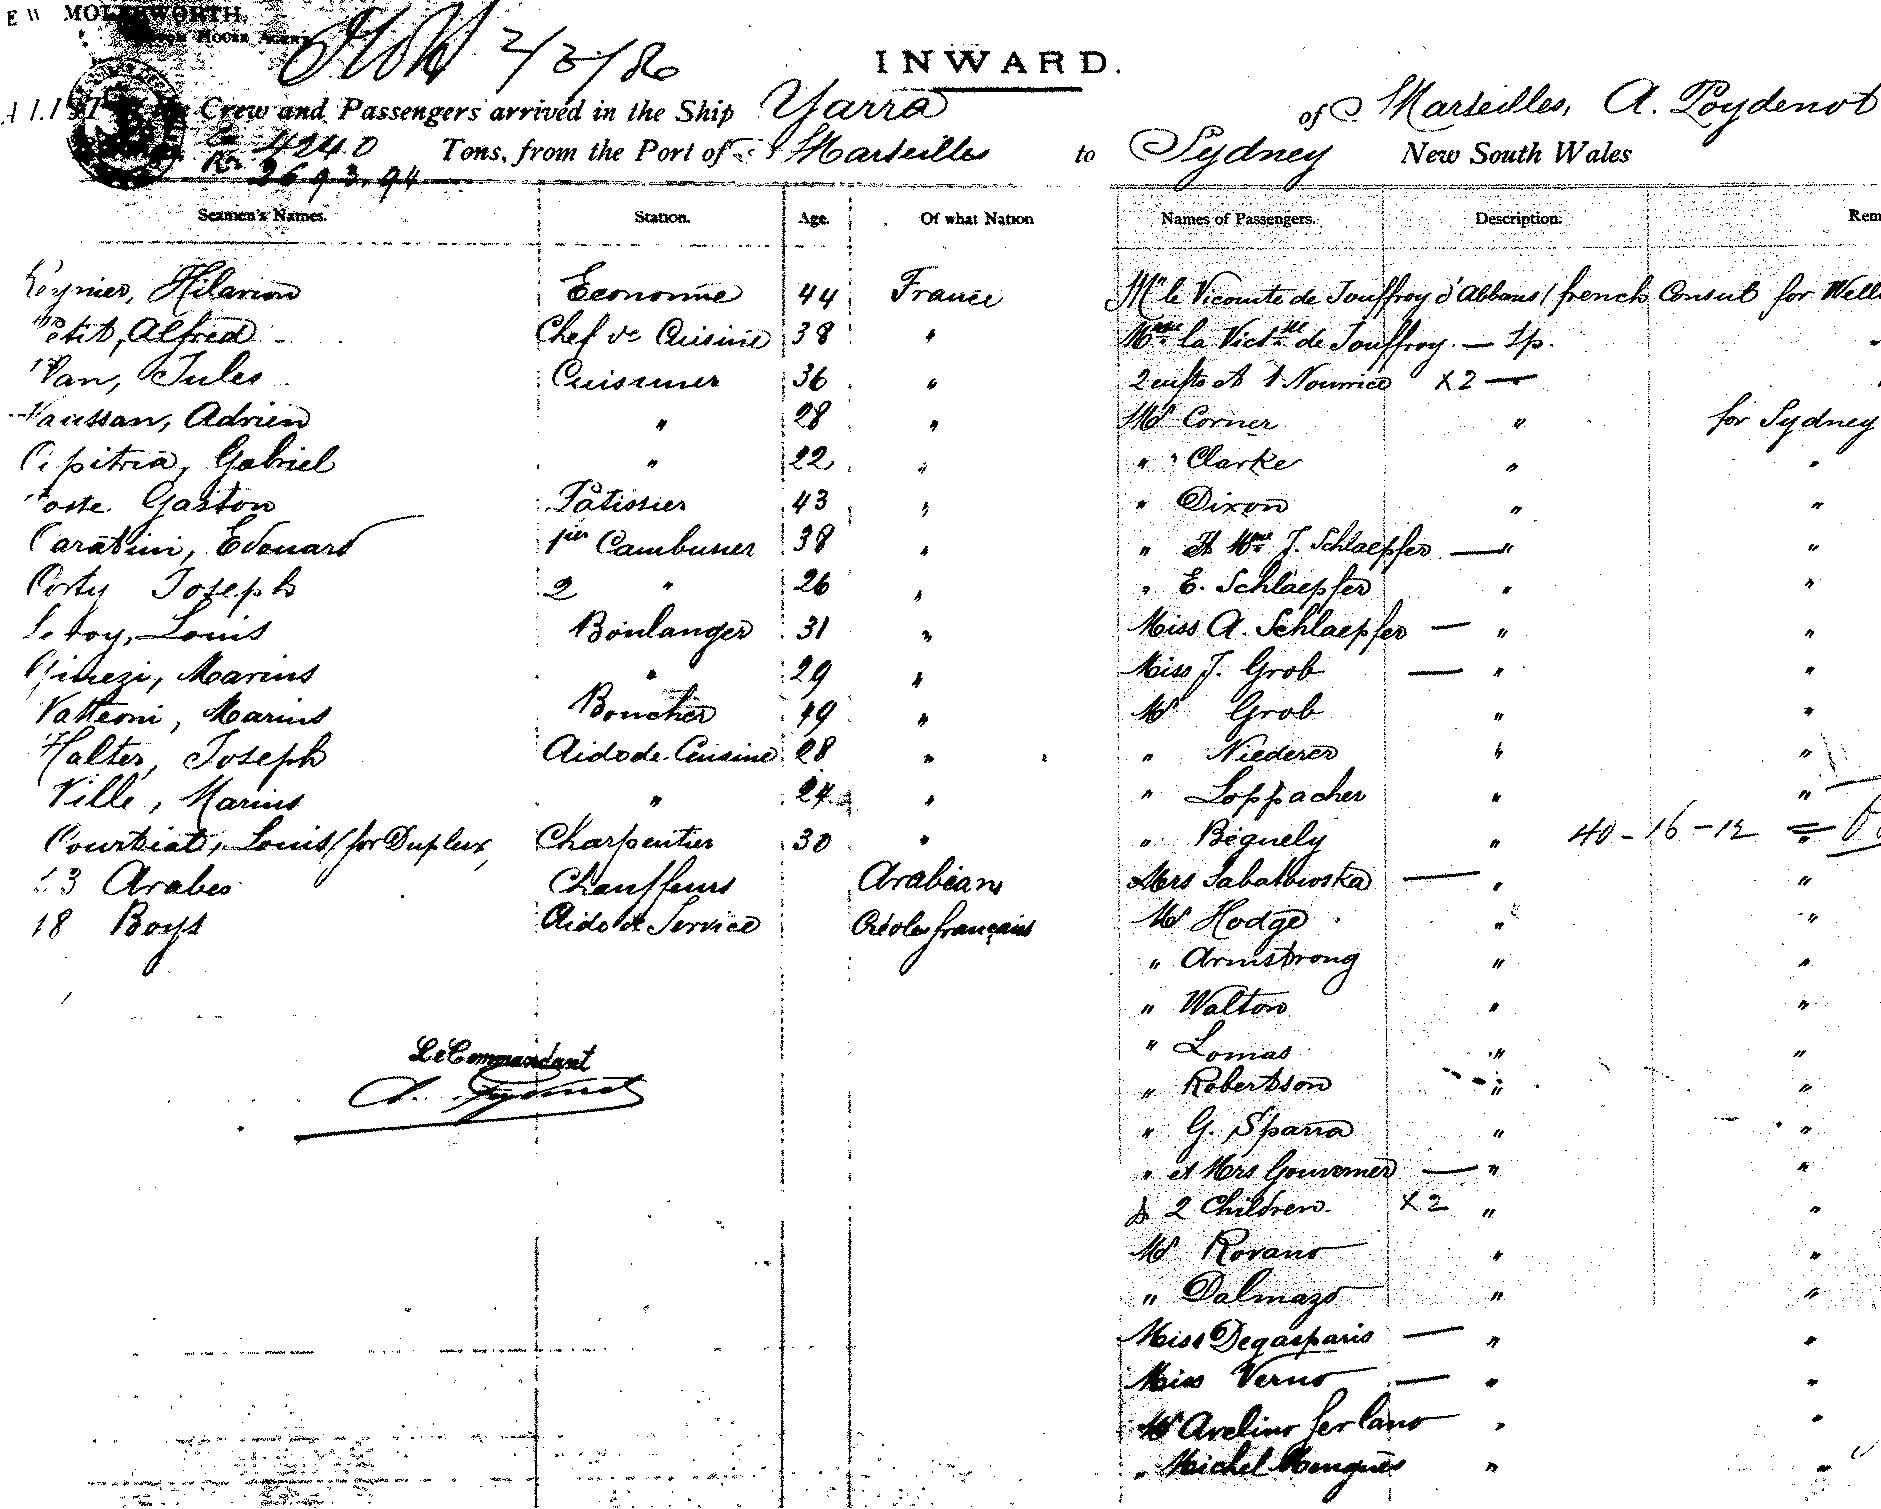 E W MOLESWORTH.
House
2/3/86
INWARD.
A LIST Crew and Passengers arrived in the Ship Yarra of Marseilles, A. Poydenot
4240 Tons, from the Port of Marseilles to Sydney New South Wales
2693.94
Seamen's Names. Station. Age. Of what Nation
Hilarion Econome 44 France
Petit, Alfred Chef de Cuisine 38 "
Van, Jules Cuisinier 36 "
Vaussan, Adrien " 28 "
Gabriel " 22 "
Gaston Patissier 43 "
Caratini, Edouard 1er Cambusier 38 "
Corty Joseph 2 " 26 "
Leroy, Louis Boulanger 31 "
Marius " 29 "
Vatteoni, Marius Boucher 49 "
Halter, Joseph Aide de Cuisine 28 "
Ville, Marius " 24 "
Courtiat, Louis (for Duplex, Charpentier 30 "
23 Arabes Chauffeurs Arabian
18 Boys Aide de Service Créoles français
Le Commandant
A. Poydenot
Names of Passengers. Description. Rem
Mr le Vicomte de Jouffroy d'Abbans (french Consul for Well
Mme la Victsse de Jouffroy. — 1p. "
2 enfts et 1 Nourrice X2 — "
Mr Corner " for Sydney
" Clarke " "
" Dixon " "
" et Mme J. Schlaepfer — " "
" E. Schlaepfer " "
Miss A. Schlaepfer — " "
Miss J. Grob — " "
Mr Grob " "
" Niederer " "
" Loppacher " "
" Béguely " 40 - 16 - 12 = "
Mrs Sabatowska — " "
Mr Hodge " "
" Armstrong " "
" Walton " "
" Lomas " "
" Robertson " "
" G. Sparra " "
" et Mrs Gouverner — " "
& 2 Children. X2 " "
Mr Rovano " "
" Dalmazo " "
Miss Degasparis — " "
Miss Verno — " "
Mr Avelino Serlano " "
" Michel Mengues " "